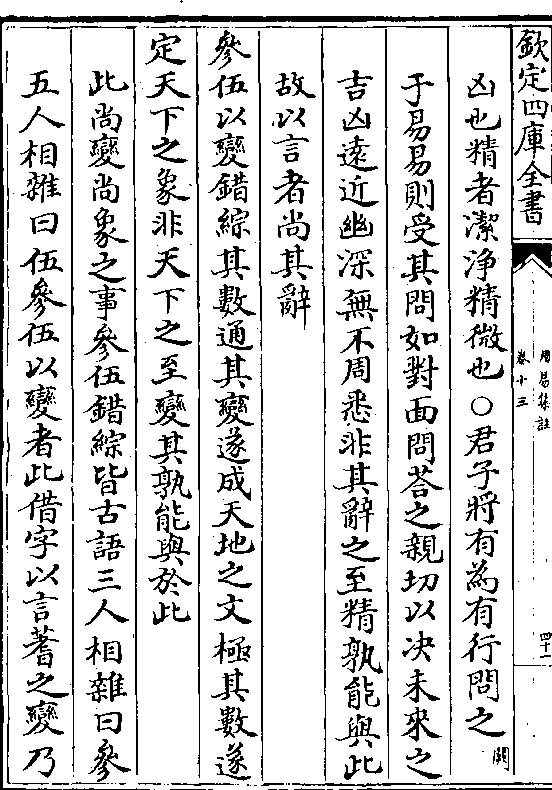 欽定四庫全書
周易集註
卷十三
四十一
凶也精者潔浄精微也○君子將有為有行問之闕
于易易則受其問如對面問荅之親切以决未來之
吉凶遠近幽深無不周悉非其辭之至精孰能與此
故以言者尚其辭
參伍以變錯綜其數通其變遂成天地之文極其數遂
定天下之象非天下之至變其孰能與於此
此尚變尚象之事參伍錯綜皆古語三人相雜曰參
五人相雜曰伍參伍以變者此借字以言蓍之變乃